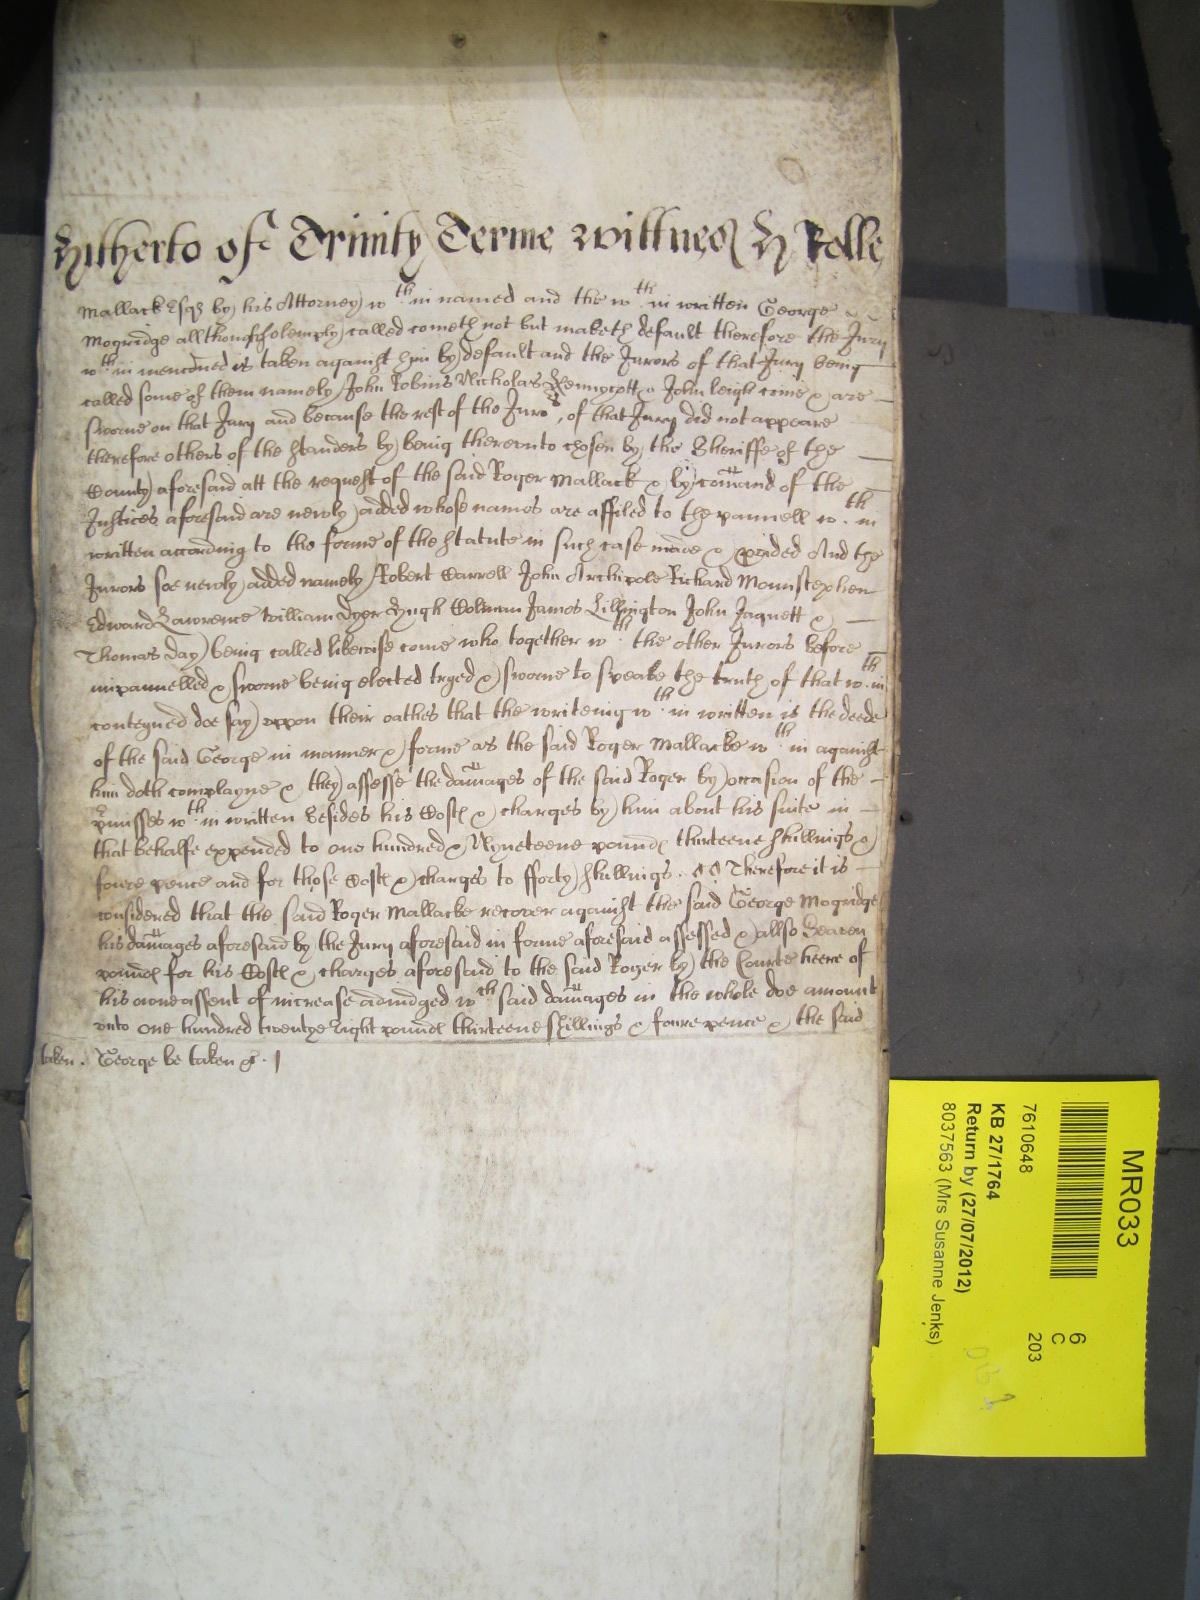 Hitherto of Trinity Terme wittnes H Rolle
Mallack Esqr by his Attorney wth in named and the wth in written George
Mogridge allthough solemply called cometh not but maketh default therefore the Jury
wth in mencōned is taken against him by default and the Jurors of that Jury being
called some of them namely John Robins Nicholas Pennycott & John Leigh come & are
sworne on that Jury and because the rest of the Jurors of that Jury did not appeare
therefore others of the standers by being thereunto chosen by the Sheriffe of the
County aforesaid att the request of the said Roger Mallack & by com̄and of the
Justices aforesaid are newly added whose names are affiled to the pannell wth in
written according to the forme of the statute in such case made & pvided And the
Jurors soe newly added namely Robert Carrell John Archipole Richard Mounstephen
Edward Lawrence William Dyer Hugh Colman James Lillington John Jaquett &
Thomas Day being called likewise come who together wth the other Jurors before
impannelled & sworne being elected tryed & sworne to speake the truth of that wth in
conteyned doe say uppon their oathes that the writeing wth in written is the deede
of the said George in manner & forme as the said Roger Mallacke wth in against
him doth complayne & they assesse the dam̄ages of the said Roger by occasion of the
pmisses wth in written besides his Costs & charges by him about his suite in
that behalfe expended to one hundred & Nyneteene pounds thirteene shillings &
foure pence and for those Costs & charges to fforty shillings. Therefore it is
considered that the said Roger Mallacke recover against the said George Mogridge
his dam̄ages aforesaid by the Jury aforesaid in forme aforesaid assessed & allso Seaven
pounds for his Costs & charges aforesaid to the said Roger by the Courte heere of
his owne assent of increase adiudged wch said dam̄ages in the whole doe amount
unto one hundred twentye eight pounds thirteene shillings & foure pence & the said
taken. George be taken &c.
MR033
7610648
KB 27/1764
Return by (27/07/2012)
8037563 (Mrs Susanne Jenks)
6
C
203